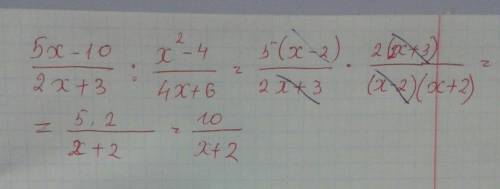 (5x-10)/(2x+3) : (x²-4)/(4x+6) = 5(x-2)/(2x+3) · 2(2x+3)/((x-2)(x+2)) =
= (5.2)/(x+2) = 10/(x+2)